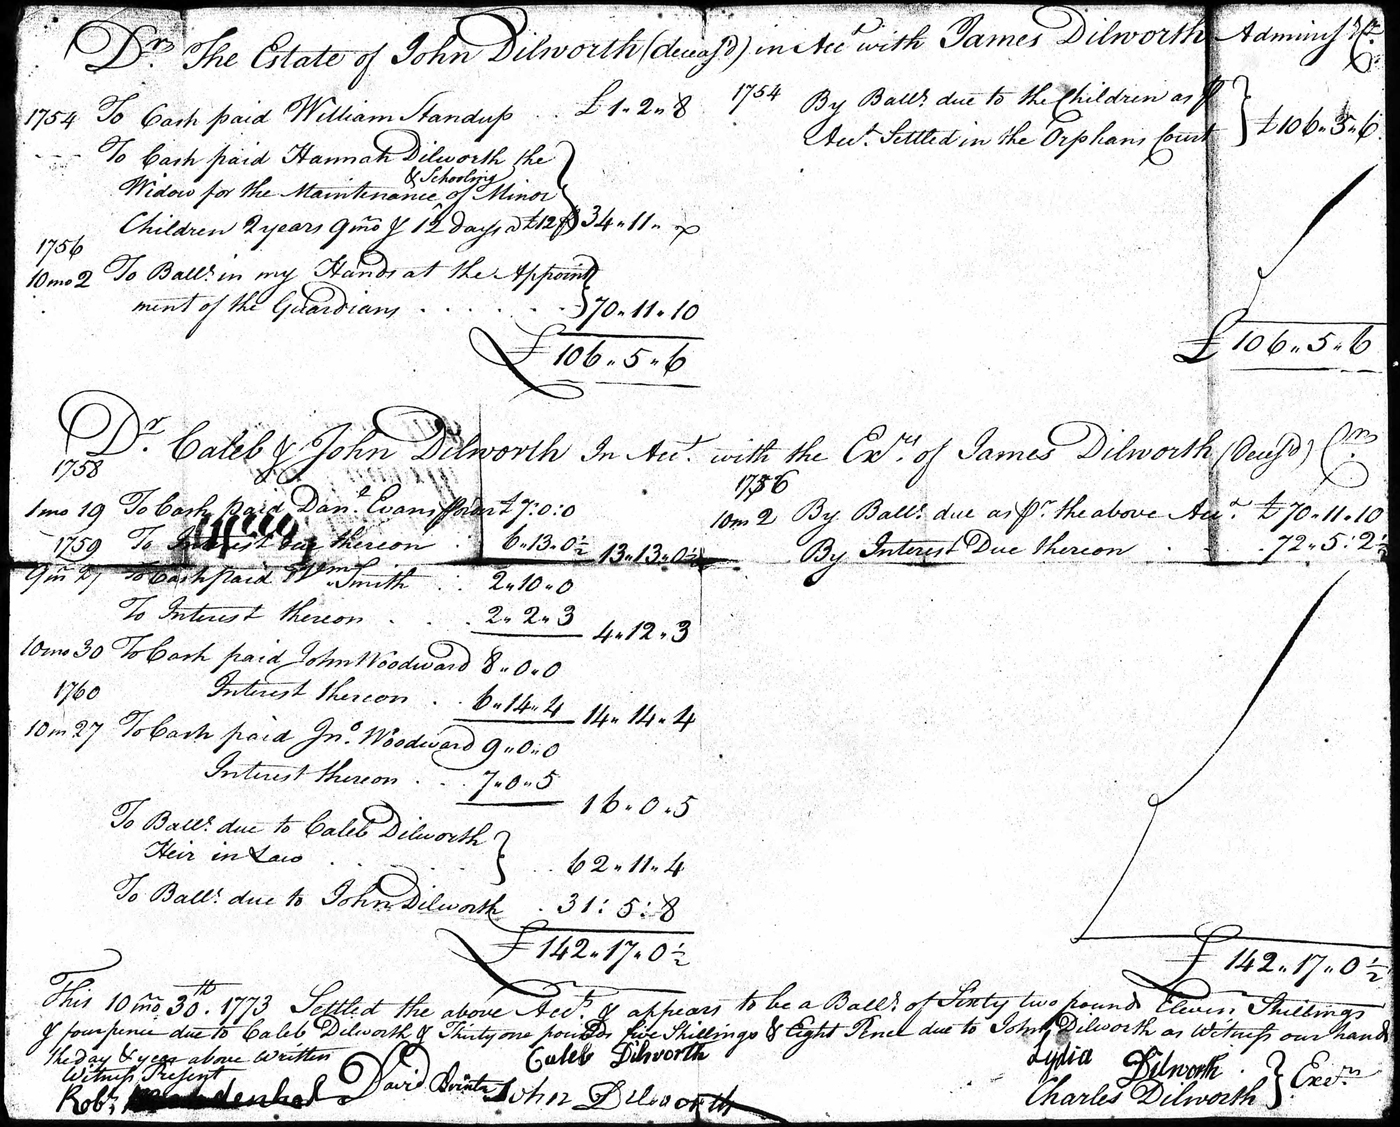 Drs The Estate of John Dilworth (deceas'd) in Acct with James Dilworth Adminisr Cr
1754 To Cash paid William Standup . . £ 1 " 2 " 8
To Cash paid Hannah Dilworth the
Widow for the Maintenance & Schooling of Minor
Children 2 years 9mo & 12 Days a £12 34 " 11 "
1756
10mo 2 To Balle. in my Hands at the Appoint
ment of the Guardians . . . . . . 70 " 11 " 10
£ 106 " 5 " 6
1754 By Balle. due to the Children as p
Acct. Settled in the Orphans Court £106 " 5 " 6
£ 106 " 5 " 6
Dr. Caleb & John Dilworth In Acct. with the Exrs. of James Dilworth (Deces'd) Crs
1758
1mo 19 To Cash paid Danl. Evans £7:0:0
1759 To Interest due thereon . 6 " 13 " 0½ 13 " 13 " 0½
9mo 27 To Cash paid Wm Smith . : 2 " 10 " 0
To Interest thereon . . . 2 " 2 " 3 4 " 12 " 3
10mo 30 To Cash paid John Woodward 8 " 0 " 0
1760 Interest thereon . . 6 " 14 " 4 14 " 14 " 4
10m 27 To Cash paid Jno. Woodward 9 " 0 " 0
Interest thereon . . . 7 " 0 " 5 16 " 0 " 5
To Balle. due to Caleb Dilworth
Heir in Law . . . . 62 " 11 " 4
To Balle. due to John Dilworth . 31 : 5 : 8
£ 142 " 17 " 0½
1756
10m 2 By Balle. due as pr. the above Acct. £70 " 11 " 10
By Interest Due thereon . . . 72 " 5 : 2½
£ 142 " 17 " 0½
This 10mo 30th. 1773 Settled the above Acct. & appears to be a Balle. of Sixty two pounds Eleven Shillings
& four pence due to Caleb Dilworth & Thirty one pounds five Shillings & Eight Pence due to John Dilworth as Witness our hands
the day & year above Written
Witness Present
Robt. David Caleb Dilworth
John Dilworth
Lydia Dilworth
Charles Dilworth Exers